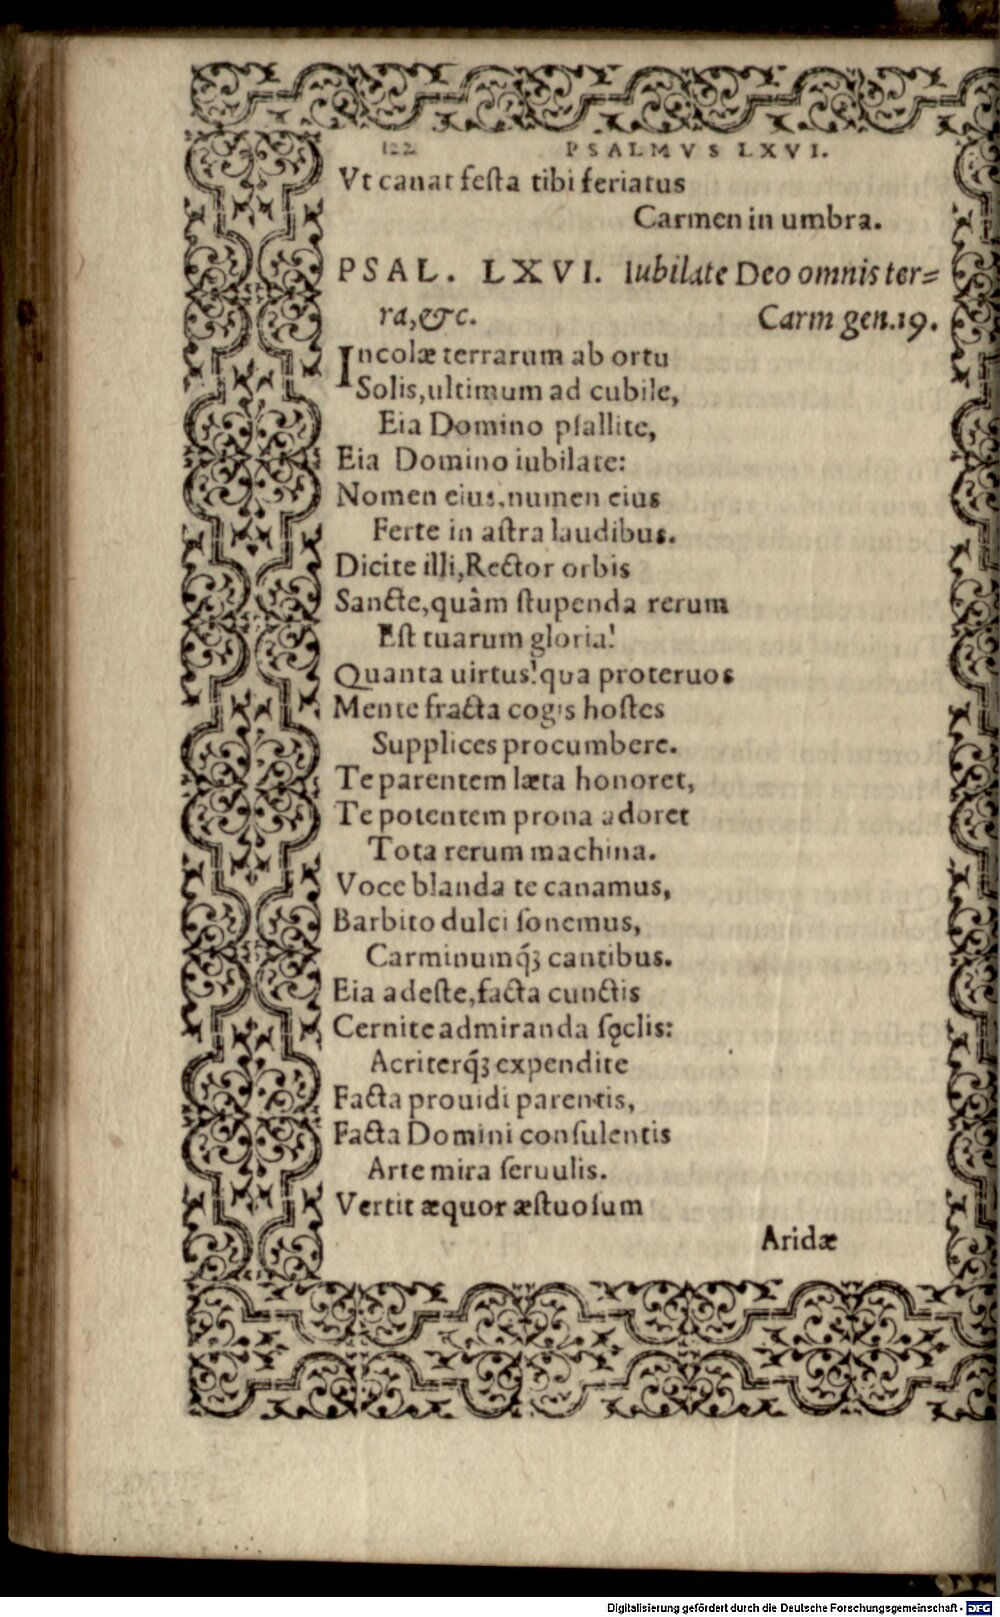 122 PSALMVS LXVI.
Vt canat festa tibi feriatus
Carmen in umbra.
PSAL. LXVI. Iubilate Deo omnis ter=
ra, &c. Carm gen. 19.
Incolæ terrarum ab ortu
Solis, ultimum ad cubile,
Eia Domino psallite,
Eia Domino iubilate:
Nomen eius, numen eius
Ferte in astra laudibus.
Dicite illi, Rector orbis
Sancte, quàm stupenda rerum
Est tuarum gloria!
Quanta uirtus! qua proteruos
Mente fracta cogis hostes
Supplices procumbere.
Te parentem læta honoret,
Te potentem prona adoret
Tota rerum machina.
Voce blanda te canamus,
Barbito dulci sonemus,
Carminumq́ꝫ cantibus.
Eia adeste, facta cunctis
Cernite admiranda sęclis:
Acriterq́ꝫ expendite
Facta prouidi parentis,
Facta Domini consulentis
Arte mira seruulis.
Vertit æquor æstuosum
Aridæ
Digitalisierung gefördert durch die Deutsche Forschungsgemeinschaft - DFG